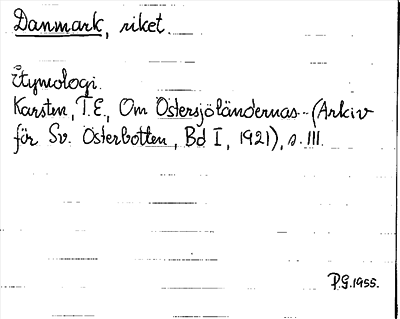 Danmark, riket.
Etymologi.
Karsten, T.E., Om Östersjöländernas -- (Arkiv
för Sv. Österbotten, Bd I, 1921), s. 111.
P.G. 1955.